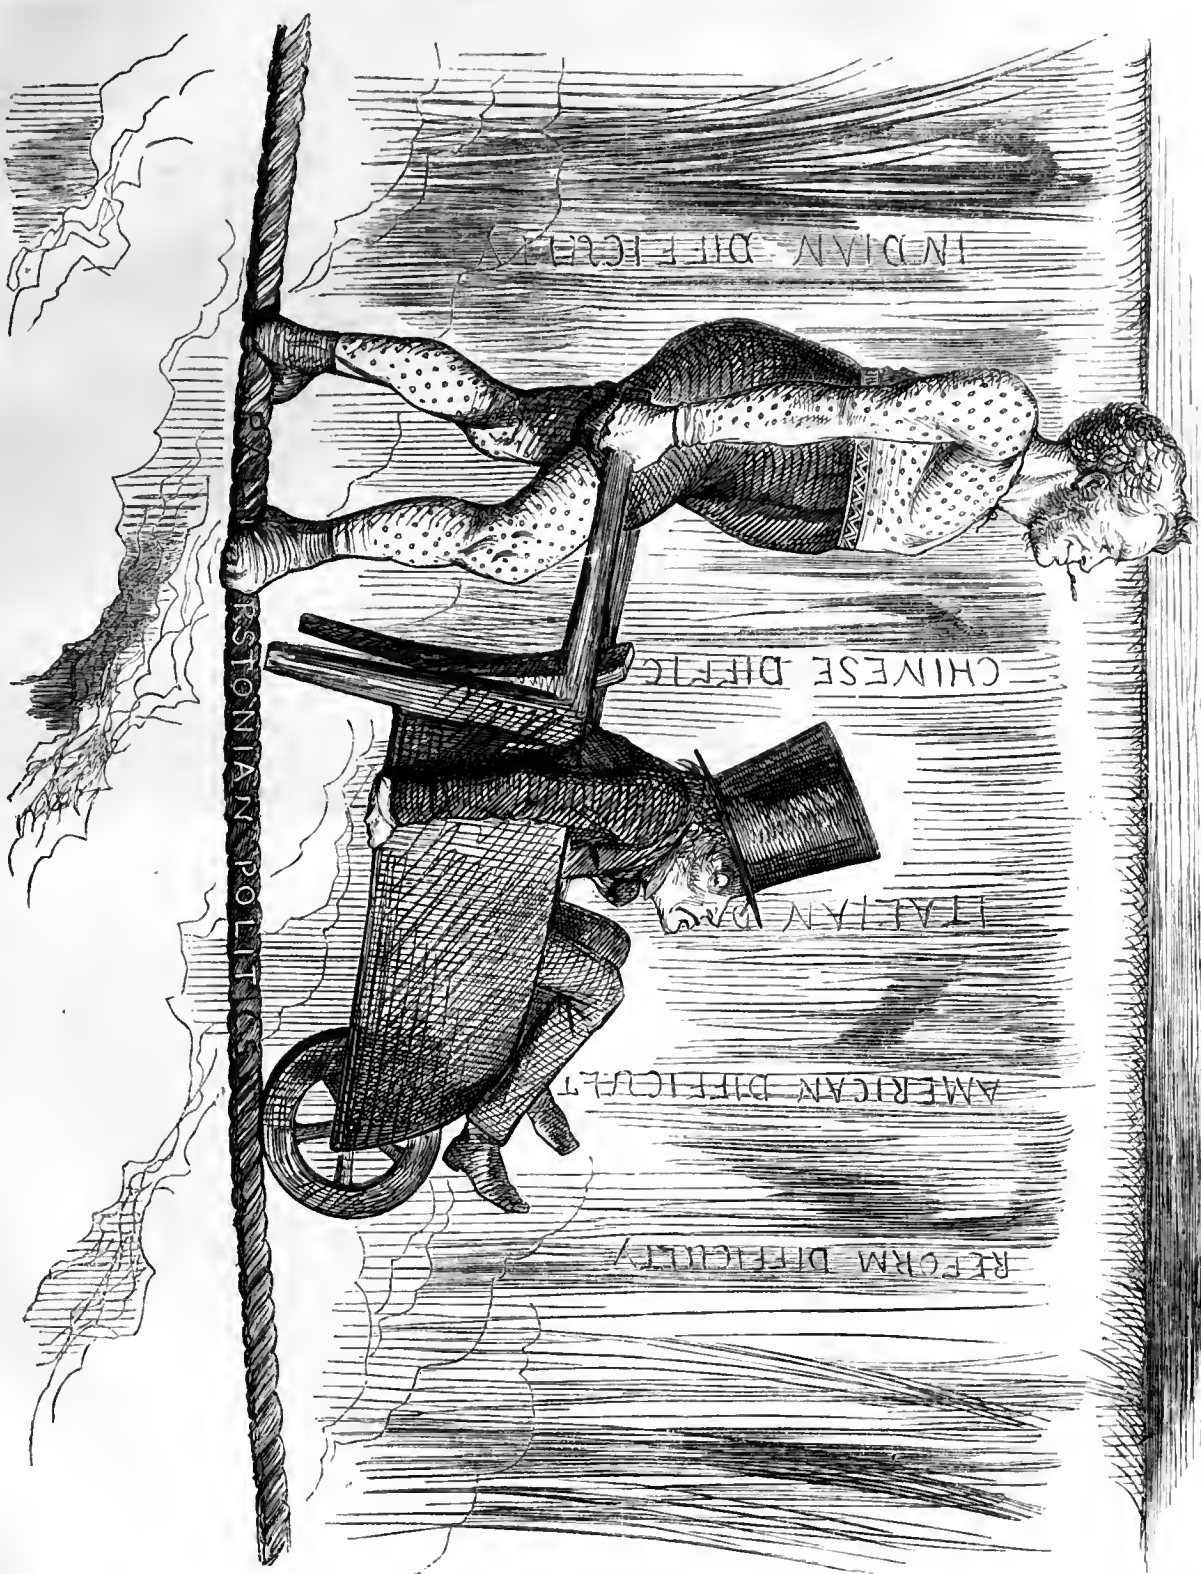 INDIAN DIFFICULTY
CHINESE DIFFIC
ITALIAN D
AMERICAN DIFFICULT
REFORM DIFFICULTY
RSTONIAN POLITIC